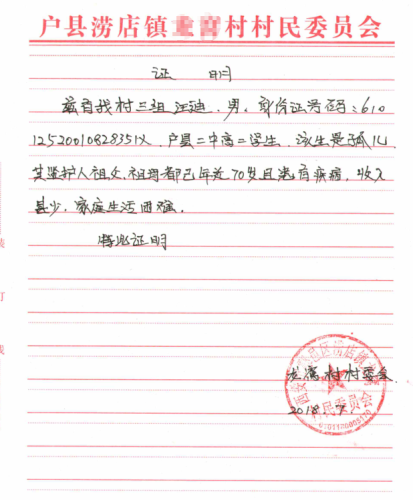 户县涝店镇村村民委员会
证 明
兹有我村三组汪迪，男，身份证号码：610
12520010828351X，户县二中高二学生，该生是孤儿
其监护人祖父、祖母都已年近70岁且患有疾病，收入
甚少，家庭生活困难。
特此证明
装
订
线
村村委会
2018.7
邑区涝店镇
村民委员会